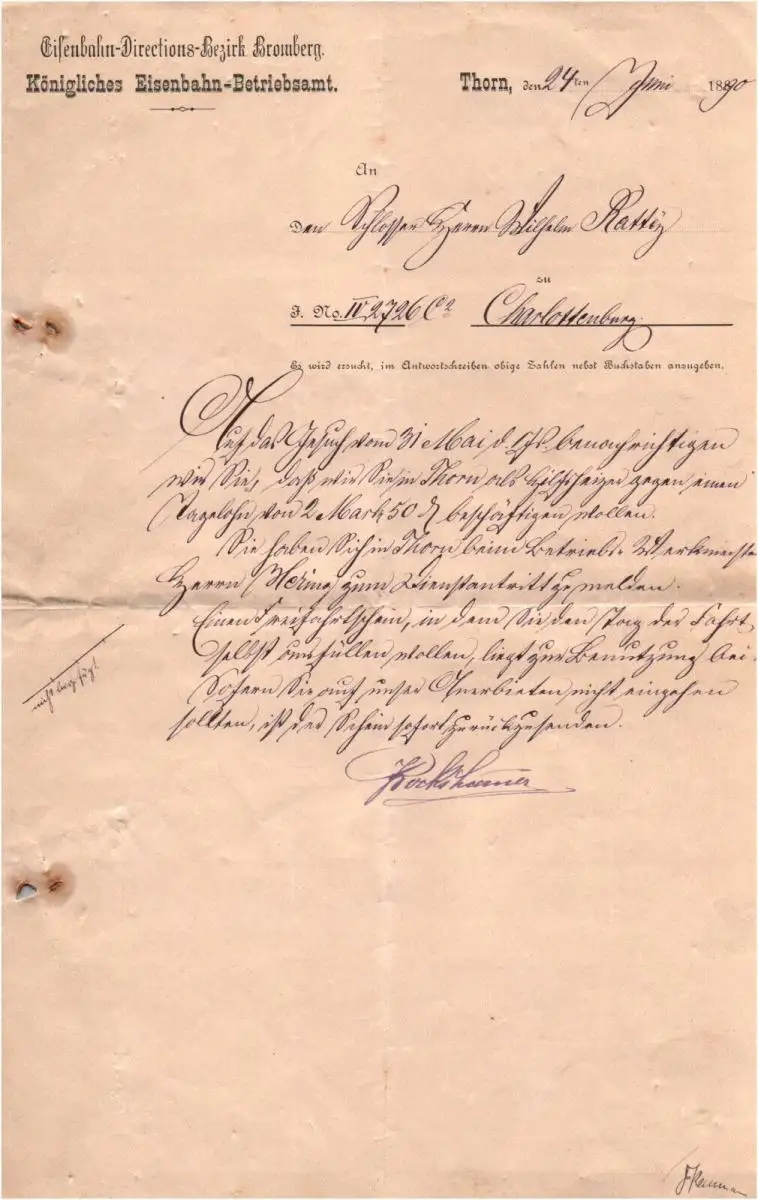 Eisenbahn-Directions-Bezirk Bromberg.
Königliches Eisenbahn-Betriebsamt.
Thorn, den 24ten Juni 1890
An
Den Schlosser Herrn Wilhelm
zu
J. No. IV 2726 C2 Charlottenburg.
Es wird ersucht, im Antwortschreiben obige Zahlen nebst Buchstaben anzugeben.
Auf das Gesuch vom 31 Mai d. Js. benachrichtigen
wir Sie, daß wir Sie in Thorn als Hülfsheizer gegen einen
Tagelohn von 2 Mark 50 ₰ beschäftigen wollen.
Sie haben Sich in Thorn beim Betriebs-Werkmeister
Herrn Hering zum Dienstantritt zu melden.
Einen Freifahrtschein, in dem Sie den Tag der Fahrt
selbst ausfüllen wollen, liegt zur Benutzung bei.
Sofern Sie auf unser Anerbieten nicht eingehen
sollten, ist der Schein sofort zurückzusenden.